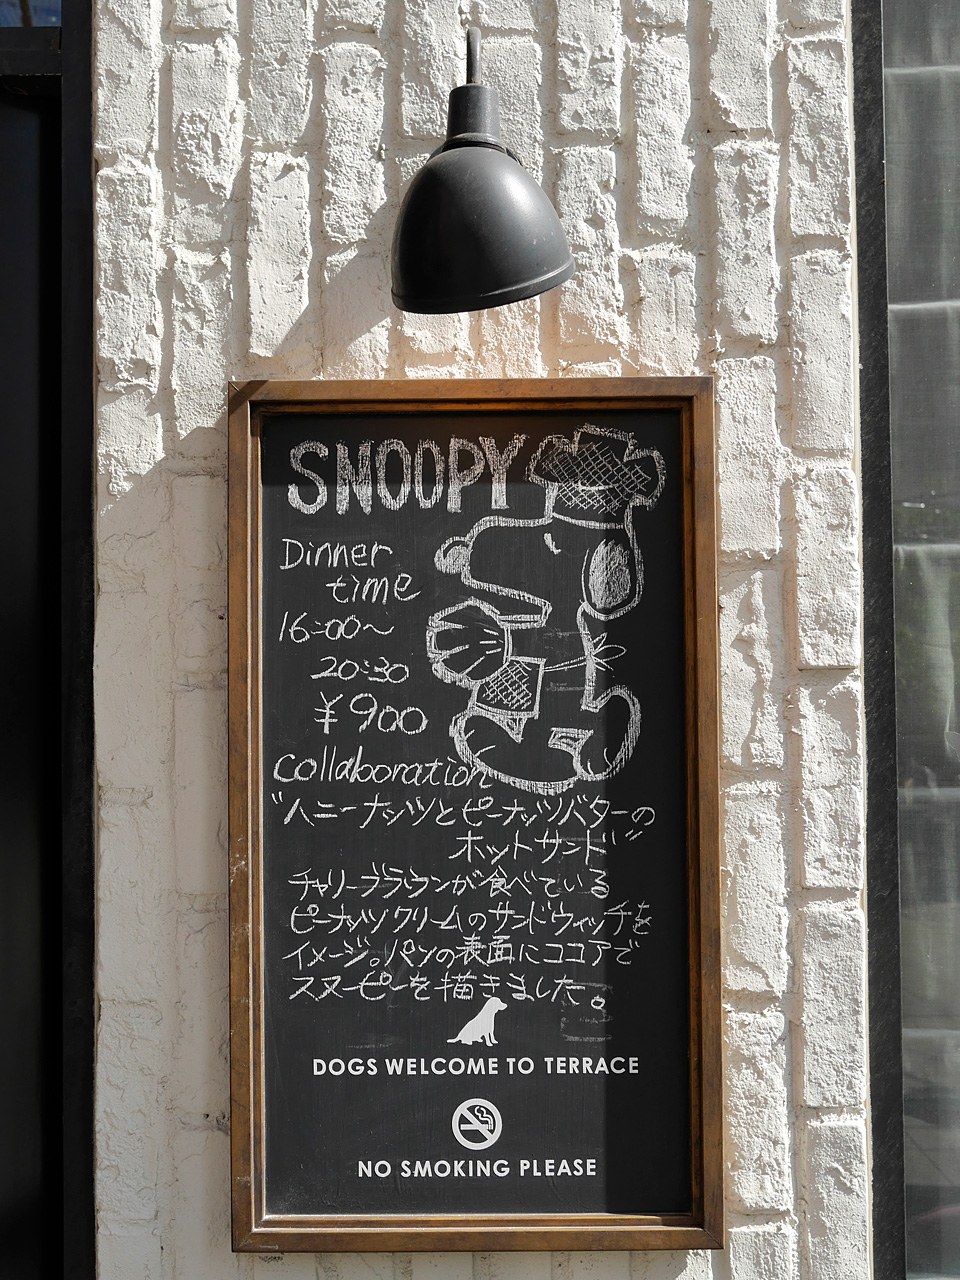 SNOOPY
Dinner
time
16:00～
20:30
¥900
Collaboration
"ハニーナッツとピーナッツバターの
ホットサンド"
チャーリーブラウンが食べている
ピーナッツクリームのサンドウィッチを
イメージ。パンの表面にココアで
スヌーピーを描きました。
DOGS WELCOME TO TERRACE
NO SMOKING PLEASE